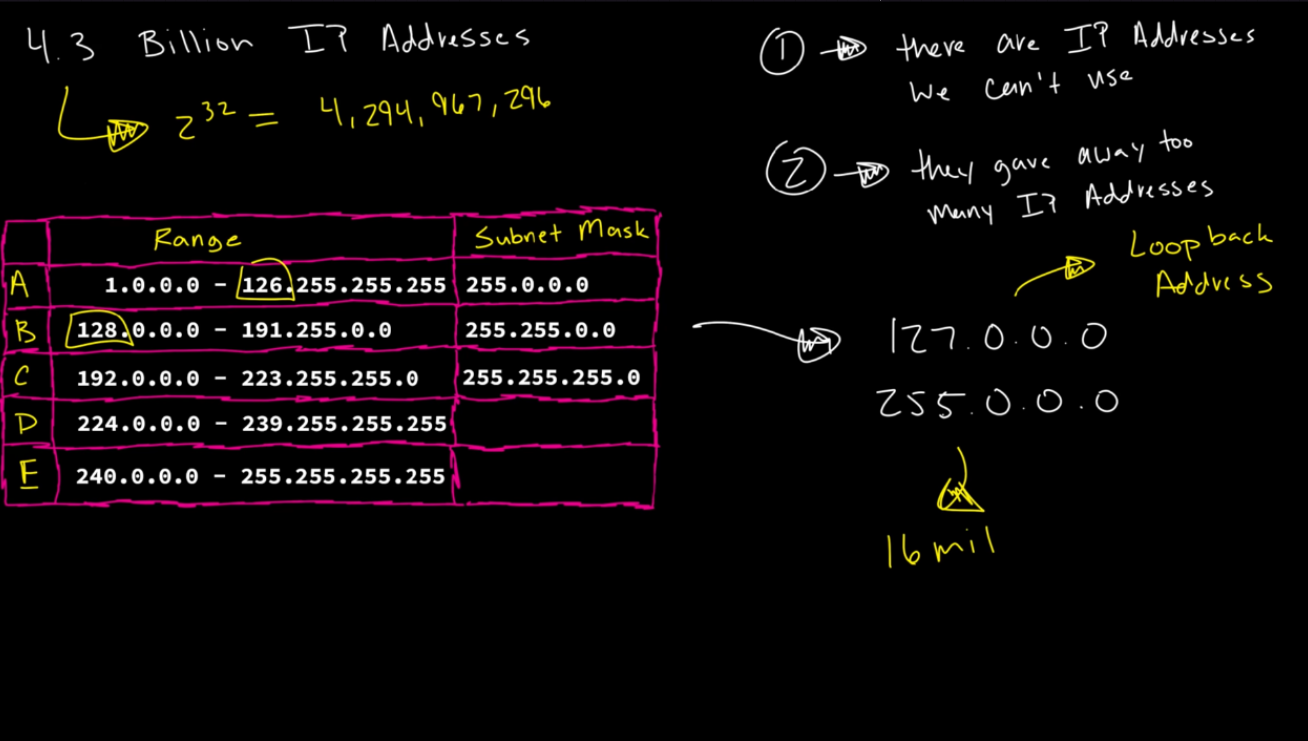 4.3 Billion IP Addresses
2^32 = 4,294,967,296
Range Subnet Mask
A 1.0.0.0 - 126.255.255.255 255.0.0.0
B 128.0.0.0 - 191.255.0.0 255.255.0.0
C 192.0.0.0 - 223.255.255.0 255.255.255.0
D 224.0.0.0 - 239.255.255.255
E 240.0.0.0 - 255.255.255.255
1 there are IP Addresses
we can't use
2 they gave away too
many IP Addresses
Loopback
Address
127.0.0.0
255.0.0.0
16 mil